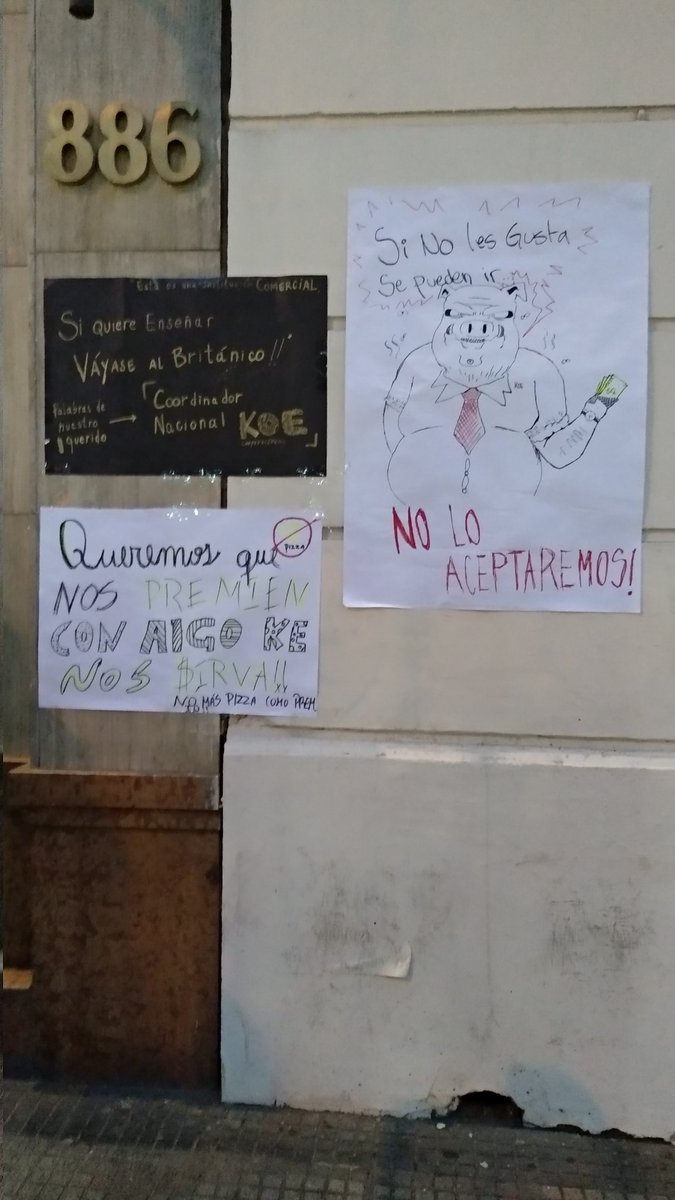 886
"Esta es una institución COMERCIAL,
Si quiere Enseñar
Váyase al Británico!!"
Palabras de
nuestro →
querido
「Coordinador
Nacional KOE」
Queremos que
PIZZA
NOS PREMIEN
CON AlGO KE
NOS $IRVA!!
NO MÁS PIZZA COMO PREM
Si No les Gusta
Se pueden ir
KOE
NO LO
ACEPTAREMOS!